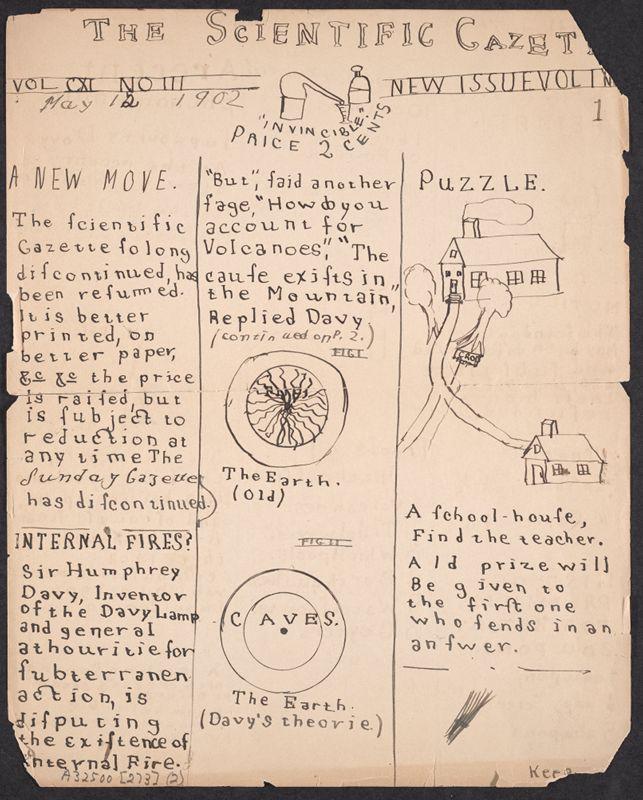 THE SCIENTIFIC GAZET
VOL CXI NO III
May 12 1902
"INVINCIBLE"
PRICE 2 CENTS
NEW ISSUE VOL I N
1
A NEW MOVE.
The ſcientific
Gazette ſo long
diſcontinued, has
been reſumed.
It is better
printed, on
better paper,
&c &c the price
is raiſed, but
is ſubject to
reduction at
any time The
Sunday Gazette
has diſcontinued.
INTERNAL FIRES?
Sir Humphrey
Davy, Inventor
of the Davy Lamp
and general
athouritie for
ſubterranen
action, is
diſputing
the exiſtence of
internal Fire.
A32500 [273] (2)
"But", ſaid another
ſage, "How do you
account for
Volcanoes", "The
cauſe exiſts in
the Mountain",
Replied Davy
(continued on P. 2.)
FIG I
FIRES
The Earth.
(Old)
FIG II
CAVES.
The Earth.
(Davy's theorie.)
PUZZLE.
A ſchool-houſe,
Find the teacher.
A 1d prize will
Be given to
the firſt one
who ſends in an
anſwer.